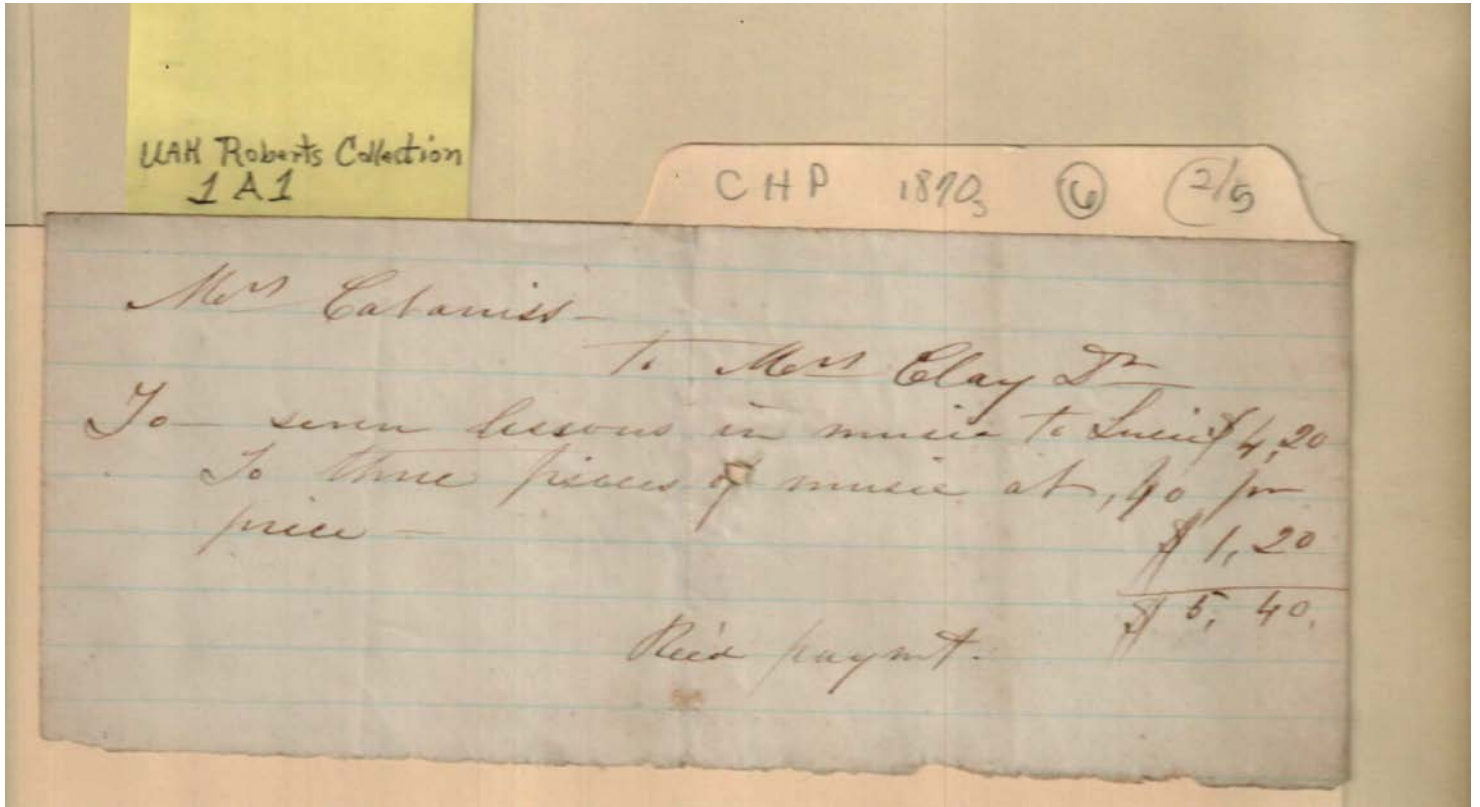 UAH Roberts Collection
1A1
CHP 1870s 6 2/5
Mrs Cabaniss
To Mrs Clay Dr
To seven lessons in music to Lucie $4,20
To three pieces of music at ,40 pr
price
$1,20
$5,40.
Rec'd paymt.